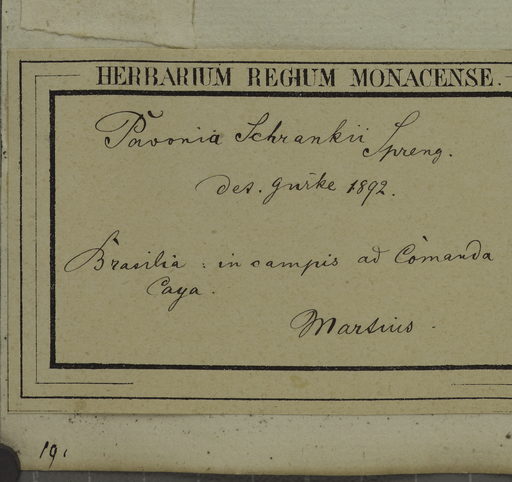 HERBARIUM REGIUM MONACENSE.
Pavonia Schrankii Spreng.
det. Gürke 1892.
Brasilia : in campis ad Comanda
Caya.
Martius.
19.